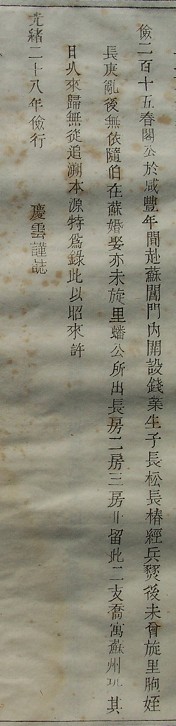 儉二百十五春闕公於咸豐年間赴蘇閶門內開設錢業生子長松長椿經兵燹後未曾旋里胞姪
長庚亂後無依隨伯在蘇婚娶亦未旋里蟠公所出長房二房三房川留此二支喬寓蘇州 其
日久來歸無從追溯本源特爲錄此以昭來許
光緒二十八年儉行 慶雲謹誌